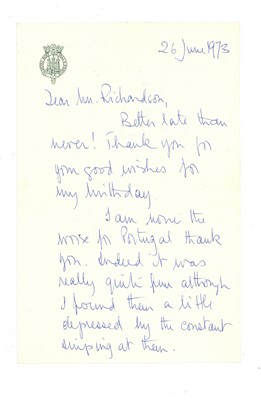 26 June 1973
Dear Mr. Richardson,
Better late than
never! Thank you for
your good wishes for
my birthday
I am none the
worse for Portugal thank
you. Indeed it was
really quite fun although
I found them a little
depressed by the constant
sniping at them.